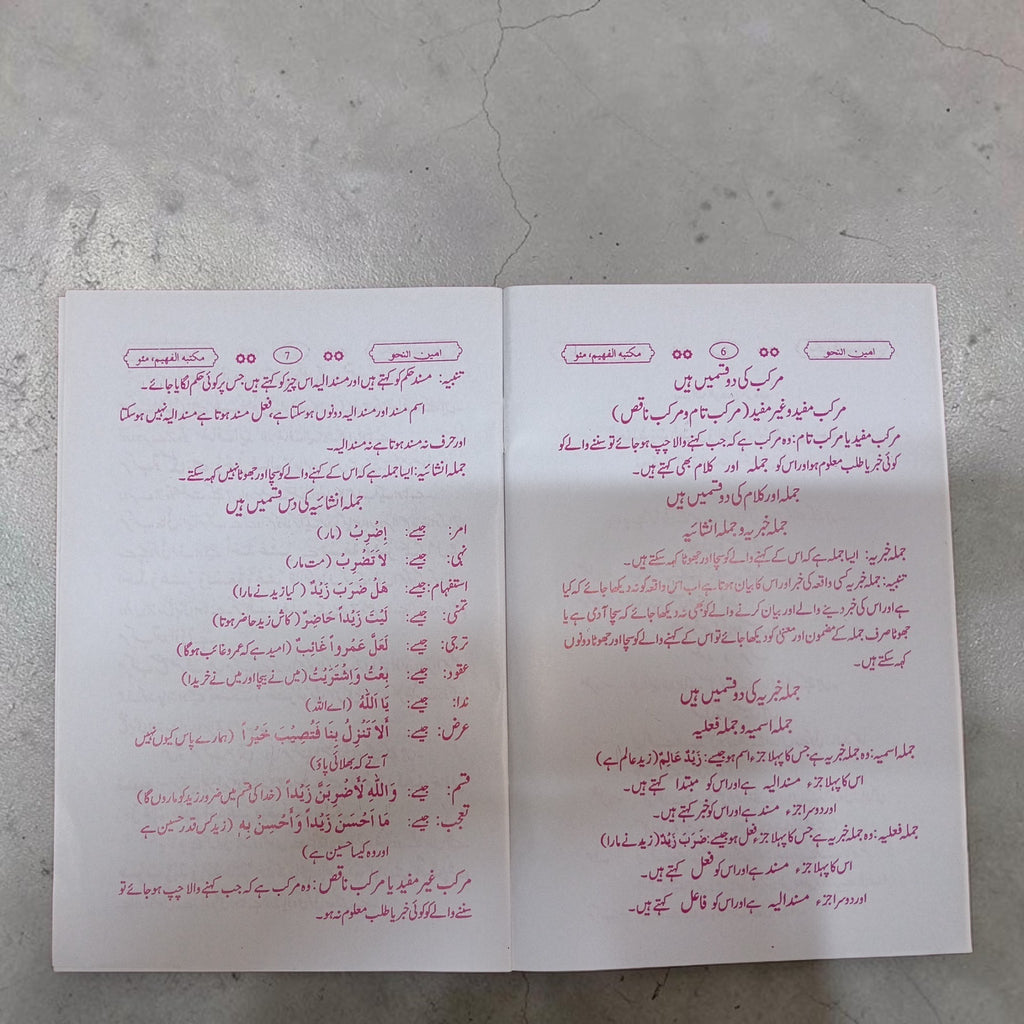 امین النحو 6 مکتبہ الفہیم، مئو
مرکب کی دو قسمیں ہیں
مرکب مفید و غیر مفید (مرکب تام و مرکب ناقص)
مرکب مفید یا مرکب تام: وہ مرکب ہے کہ جب کہنے والا چپ ہو جائے تو سننے والے کو
کوئی خبر یا طلب معلوم ہو اور اس کو جملہ اور کلام بھی کہتے ہیں۔
جملہ اور کلام کی دو قسمیں ہیں
جملہ خبریہ و جملہ انشائیہ
جملہ خبریہ: ایسا جملہ ہے کہ اس کے کہنے والے کو سچا اور جھوٹا کہہ سکتے ہیں۔
تنبیہ: جملہ خبریہ کسی واقعہ کی خبر اور اس کا بیان ہوتا ہے اب اس واقعہ کو نہ دیکھا جائے کہ کیا
ہے اور اس کی خبر دینے والے اور بیان کرنے والے کو بھی نہ دیکھا جائے کہ سچا آدمی ہے یا
جھوٹا صرف جملہ کے مضمون اور معنیٰ کو دیکھا جائے تو اس کے کہنے والے کو سچا اور جھوٹا دونوں
کہہ سکتے ہیں۔
جملہ خبریہ کی دو قسمیں ہیں
جملہ اسمیہ و جملہ فعلیہ
جملہ اسمیہ: وہ جملہ خبریہ ہے جس کا پہلا جزء اسم ہو جیسے: زَیْدٌ عَالِمٌ (زید عالم ہے)
اس کا پہلا جزء مسند الیہ ہے اور اس کو مبتدا کہتے ہیں۔
اور دوسرا جزء مسند ہے اور اس کو خبر کہتے ہیں۔
جملہ فعلیہ: وہ جملہ خبریہ ہے جس کا پہلا جزء فعل ہو جیسے: ضَرَبَ زَیْدٌ (زید نے مارا)
اس کا پہلا جزء مسند ہے اور اس کو فعل کہتے ہیں۔
اور دوسرا جزء مسند الیہ ہے اور اس کو فاعل کہتے ہیں۔
امین النحو 7 مکتبہ الفہیم، مئو
تنبیہ: مسند حکم کو کہتے ہیں اور مسند الیہ اس چیز کو کہتے ہیں، جس پر کوئی حکم لگایا جائے۔
اسم مسند اور مسند الیہ دونوں ہو سکتا ہے، فعل مسند ہوتا ہے مسند الیہ نہیں ہو سکتا
اور حرف نہ مسند ہوتا ہے نہ مسند الیہ۔
جملہ انشائیہ: ایسا جملہ ہے کہ اس کے کہنے والے کو سچا اور جھوٹا نہیں کہہ سکتے۔
جملہ انشائیہ کی دس قسمیں ہیں
امر: جیسے: اِضْرِبْ (مار)
نہی: جیسے: لَا تَضْرِبْ (مت مار)
استفہام: جیسے: هَلْ ضَرَبَ زَیْدٌ (کیا زید نے مارا)
تمنی: جیسے: لَیْتَ زَیْداً حَاضِرٌ (کاش زید حاضر ہوتا)
ترجی: جیسے: لَعَلَّ عَمْرواً غَائِبٌ (امید ہے کہ عمرو غائب ہوگا)
عقود: جیسے: بِعْتُ وَاشْتَرَیْتُ (میں نے بیچا اور میں نے خریدا)
ندا: جیسے: یَا اَللّٰهُ (اے اللہ)
عرض: جیسے: أَلَا تَنْزِلُ بِنَا فَتُصِیْبَ خَیْراً (ہمارے پاس کیوں نہیں
آتے کہ بھلائی پاؤ)
قسم: جیسے: وَاللّٰهِ لَأَضْرِبَنَّ زَیْداً (خدا کی قسم میں ضرور زید کو ماروں گا)
تعجب: جیسے: مَا اَحْسَنَ زَیْداً وَأَحْسِنْ بِهٖ (زید کس قدر حسین ہے
اور وہ کیسا حسین ہے)
مرکب غیر مفید یا مرکب ناقص: وہ مرکب ہے کہ جب کہنے والا چپ ہو جائے تو
سننے والے کو کوئی خبر یا طلب معلوم نہ ہو۔